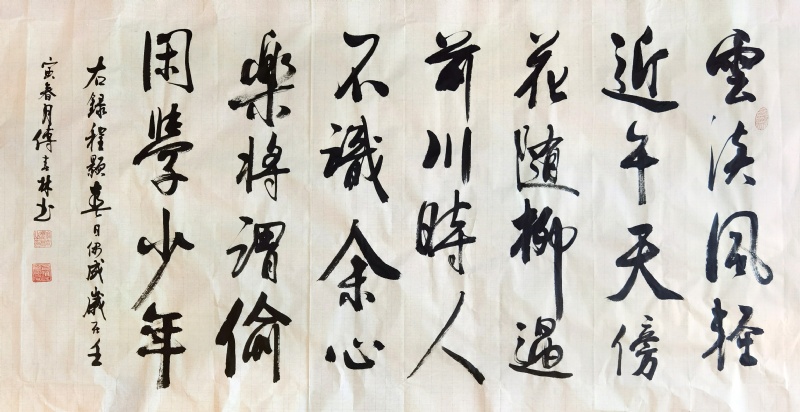 雲淡風輕
近午天傍
花隨柳過
前川時人
不識余心
樂將謂偷
閑學少年
右錄程顥春日偶成歲在壬
寅春月傅吉林書